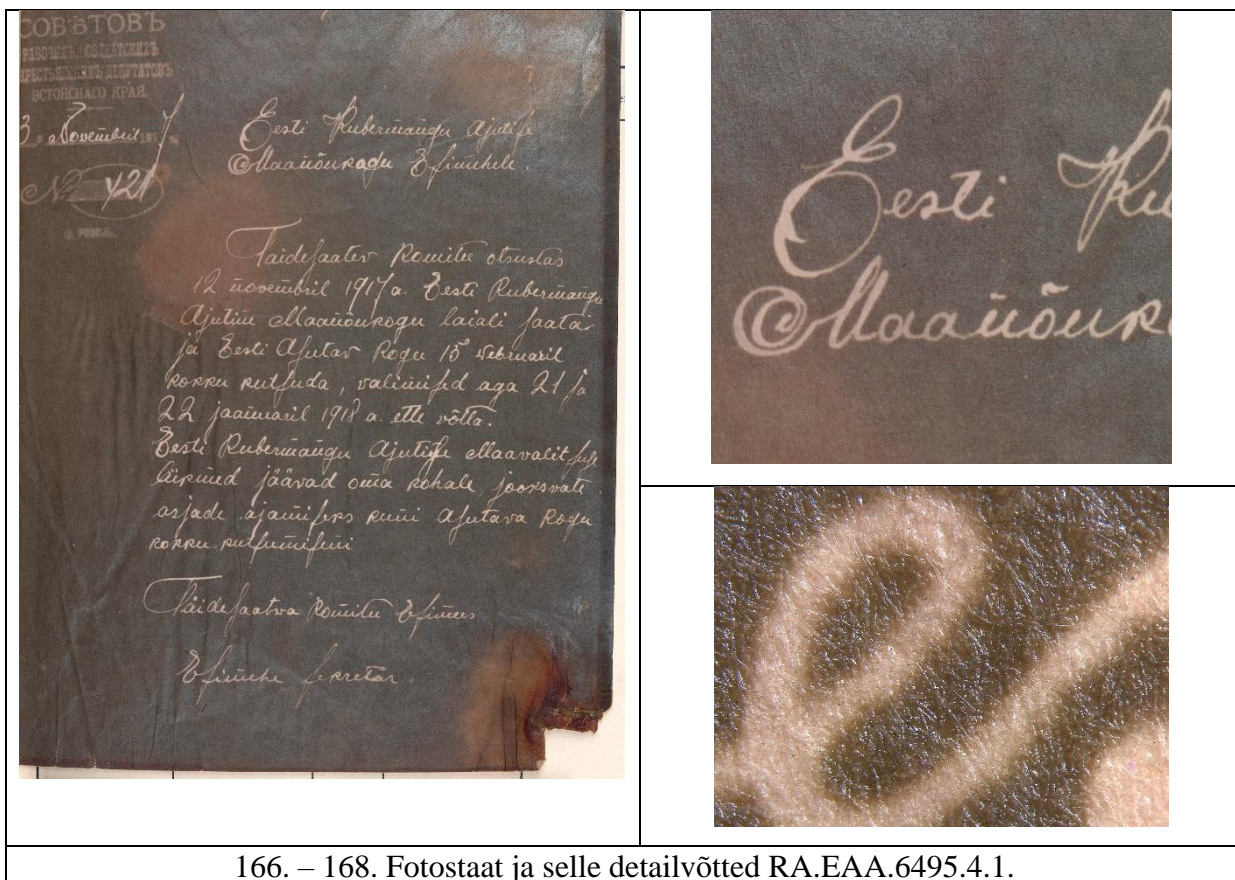 СОВѢТОВЪ
РАБОЧИХЪ, СОЛДАТСКИХЪ
КРЕСТЬЯНСКИХЪ ДЕПУТАТОВЪ
ЭСТОНСКАГО КРАЯ.
3 Novembril 1917
№ 421
Г. РЕВЕЛЬ.
Eesti Kubermangu Ajutise
Maanõukogu Esimehele.
Täidesaatev Komitee otsustas
12 novembril 1917 a. Eesti Kubermangu
Ajutine Maanõukogu laiali saata
ja Eesti Asutav Kogu 15 webruaril
kokku kutsuda, valimised aga 21 ja
22 jaanuaril 1918 a. ette võtta.
Eesti Kubermangu Ajutise Maavalitsuse
liikmed jäävad oma kohale, jooksvate
asjade ajamiseks kuni Asutava Kogu
kokku kutsumiseni
Täidesaatva Komitee Esimees
Esimehe sekretär.
Eesti Ku
Maanõuk
166. – 168. Fotostaat ja selle detailvõtted RA.EAA.6495.4.1.